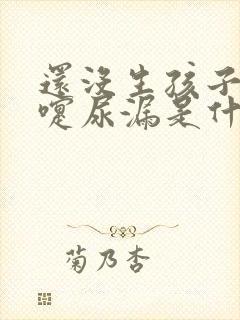 還沒生孩子
嚏尿漏是什
菊乃杏